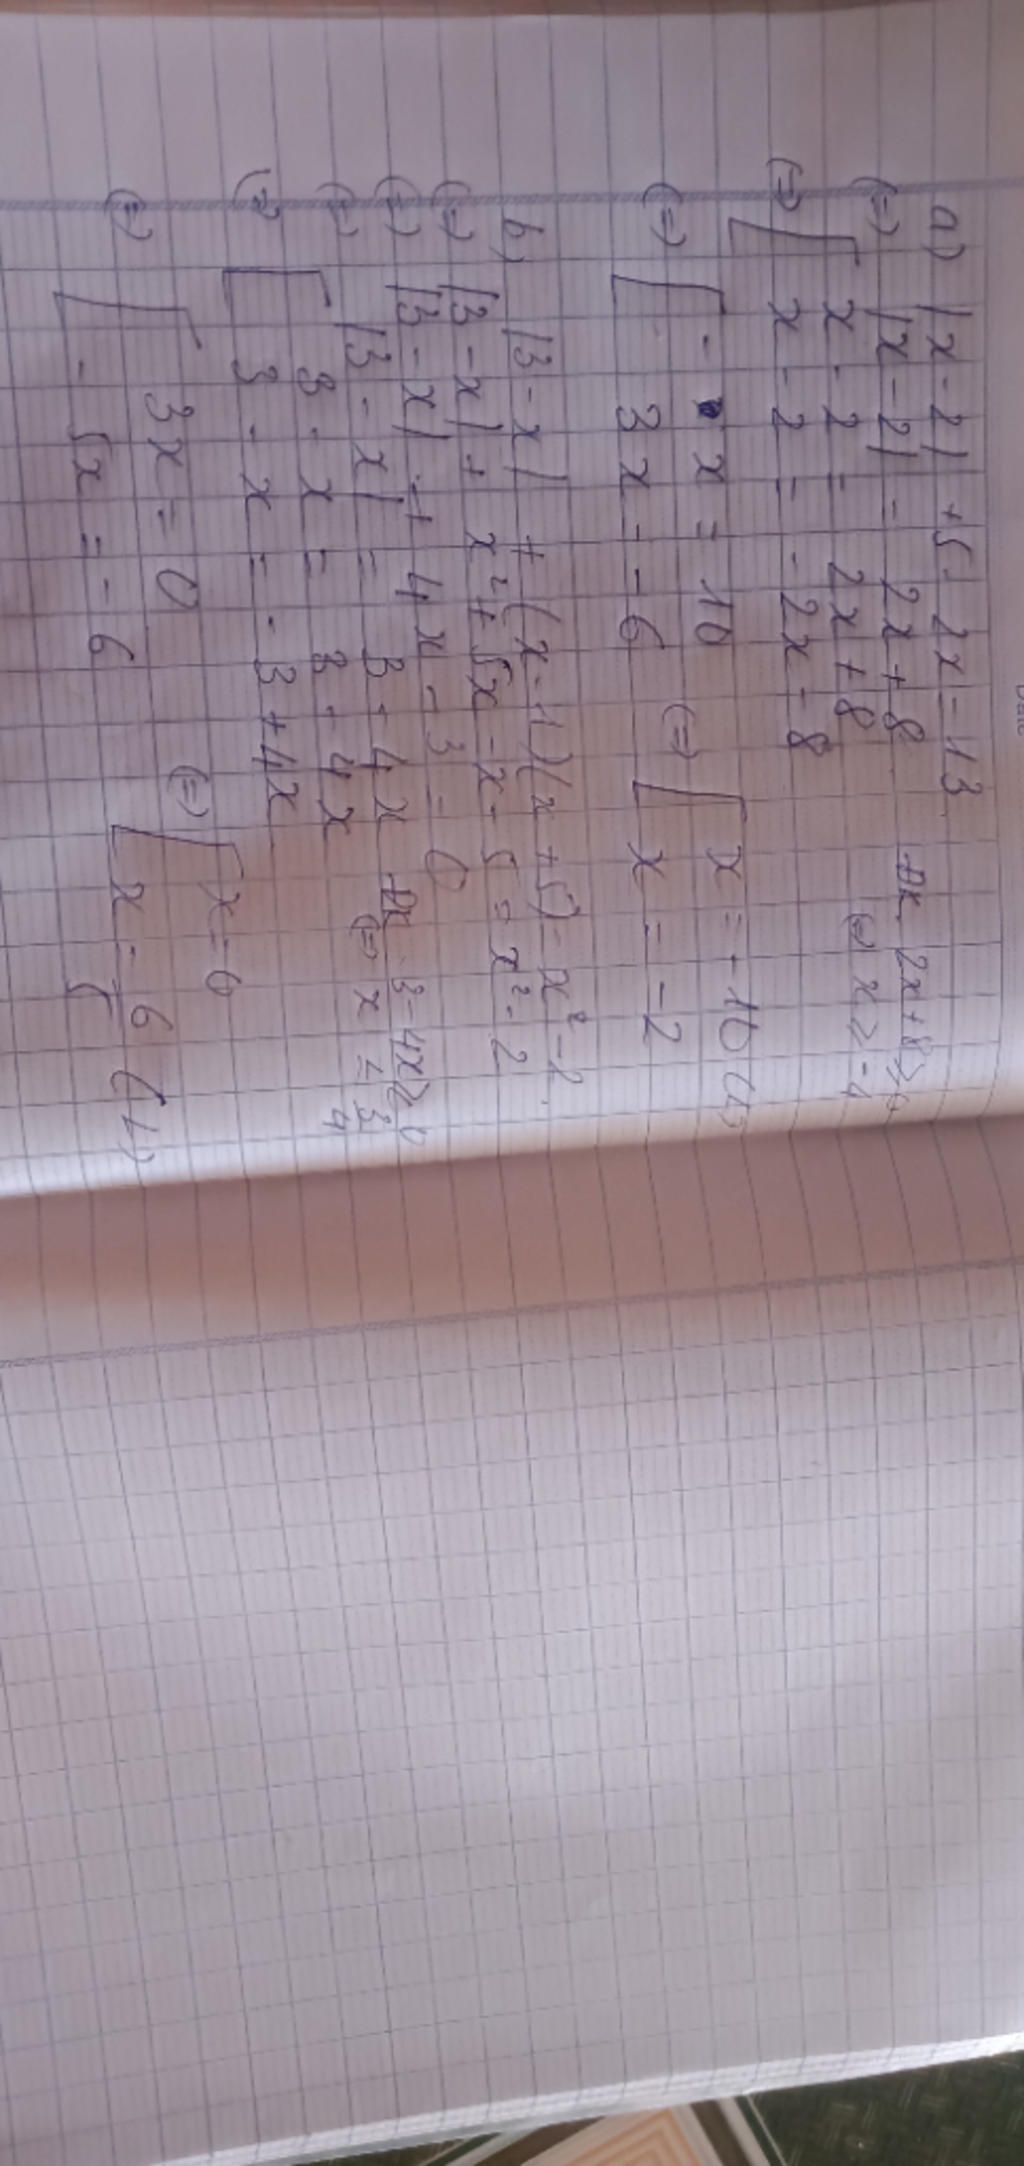 a) |x - 2| + 5 - 2x = 13
(=) |x - 2| = 2x + 8 ĐK 2x + 8 ≥ 0
(=) x ≥ -4
(=) [ x - 2 = 2x + 8
x - 2 = - 2x - 8
(=) [ - x = 10 (=) [ x = - 10 (L)
3x = - 6 x = - 2
b) |3 - x| + (x - 1)(x + 5) = x² - 2
(=) |3 - x| + x² + 5x - x - 5 = x² - 2
(=) |3 - x| + 4x - 3 = 0
(=) |3 - x| = 3 - 4x ĐK 3 - 4x ≥ 0
(=) x ≤ 3/4
(=) [ 3 - x = 3 - 4x
3 - x = - 3 + 4x
(=) [ 3x = 0 (=) [ x = 0
- 5x = - 6 x = 6/5 (L)